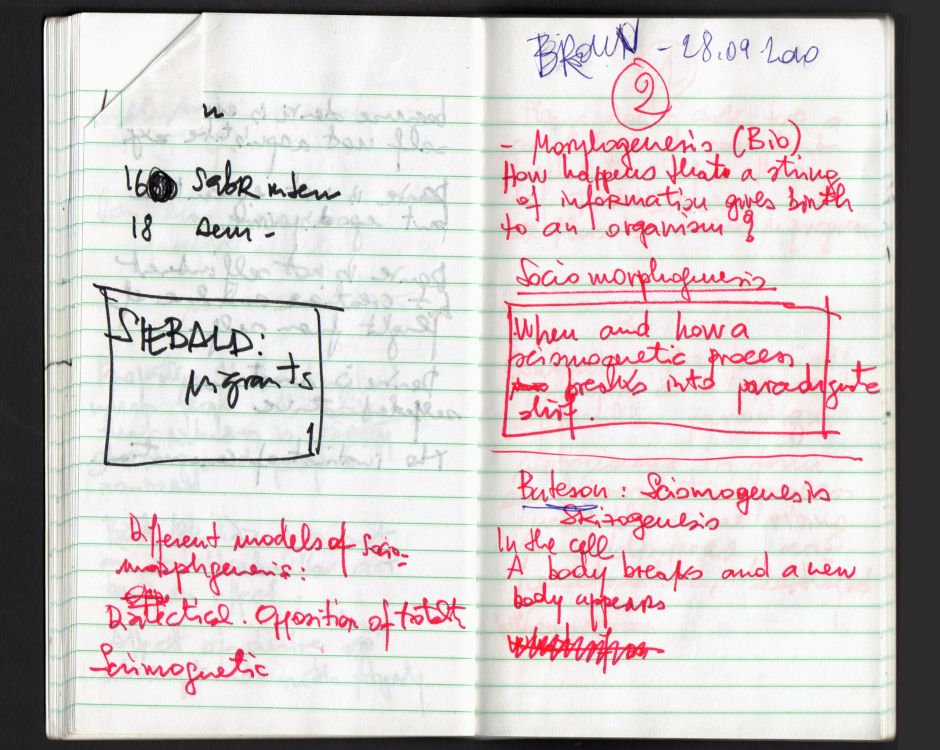 18
SIEBALD:
Migrants
1
Different models of Socio-
morphgenesis:
Dialectical. Opposition of
Scismogenetic
BROWN - 28.09.2010
2
- Morphogenesis (Bio)
How happens that a string
of information gives birth
to an organism?
Socio morphogenesis
When and how a
scismogenetic process
breaks into paradigmate
shift.
Bateson: Scismogenesis
Skizogenesis
In the cell
A body breaks and a new
body appears